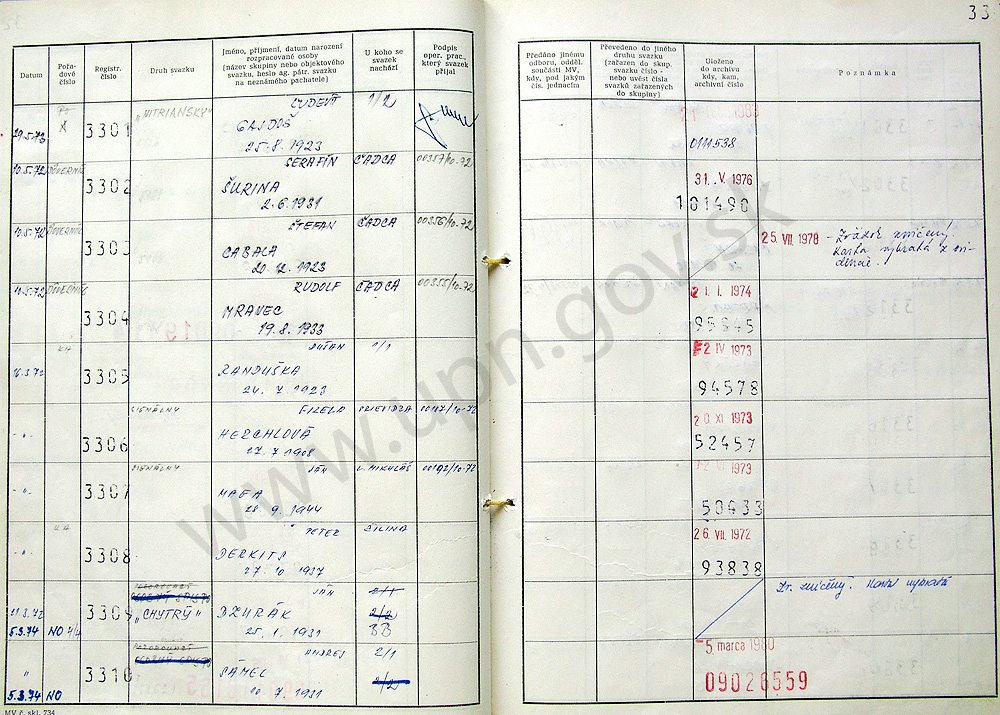 33
Datum
Pořadové číslo
Registr. číslo
Druh svazku
Jméno, příjmení, datum narození
rozpracované osoby
(název skupiny nebo objektového
svazku, heslo ag. pátr. svazku
na neznámého pachatele)
U koho se
svazek
nachází
Podpis
oper. prac.,
který svazek
přijal
Předáno jinému
odboru, odděl.
součásti MV,
kdy, pod jakým
čís. jednacím
Převedeno do jiného
druhu svazku
(zařazen do skup.
svazku číslo -
nebo uvést čísla
svazků zařazených
do skupiny)
Uloženo
do archivu
kdy, kam,
archivní číslo
Poznámka
3301 „NITRIANSKY" ĽUDEVÍT 1/2
GAJDOŠ
25.8.1923
0111538
10.5.72 DŮVERNÍK 3302 SERAFÍN ČADCA 00357/10-72
ŠURINA
2.6.1931
31. V 1976
101490
10.5.72 3303 ŠTEFAN ČADCA 00356/10-72
CABALA
20.12.1923
25. VII. 1978 - Zväzok zničený.
Karta vybratá z evidencie.
3304 RUDOLF ČADCA 00355/10-72
MRAVEC
19.8.1933
2 1. I. 1974
95645
KA DUŠAN 1/1
16.3.72 3305 RANDUŠKA
24. 7 1923
2 IV 1973
94578
SIGNÁLNY PRIEVIDZA
-"- 3306 HERCHLOVÁ
17.7 1908
2 0. XI 1973
52457
SIGNÁLNY JÁN L. MIKULÁŠ 00192/10-72
-"- 3307
28 9. 1944
VI. 1973
50433
KA PETER ŽILINA
-"- 3308 DERKITS
27. 10 1937
26. VII. 1972
93838
JÁN 2/1
3309 „CHYTRÝ" DZURÁK 2/2
5.3.74 NO 25. 1. 1931 BB
Zv. zničený. Karta vybratá
ANDREJ 2/1
" 3310 SÁMEL 2/2
5.3.74 NO 10. 7. 1931
5 marca 1980
09026559
MV č. skl. 734
www.upn.gov.sk